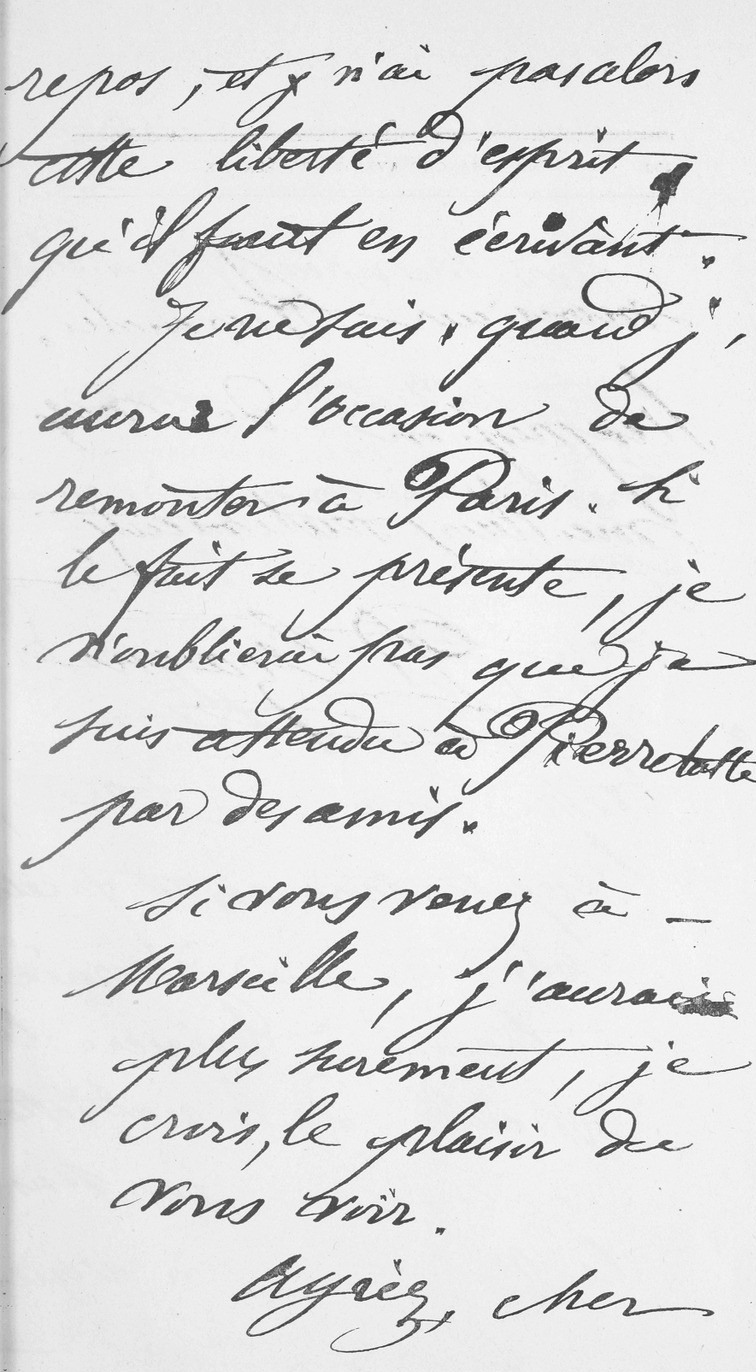 repos, et je n'ai pas alors
cette liberté d'esprit
qu'il faut en écrivant.
Je ne sais quand j'
aurai l'occasion de
remonter à Paris. Si
le fait se présente, je
n'oublierai pas que je
suis attendu à Pierrelatte
par des amis.
Si vous venez à
Marseille, j'aurai
plus surement, je
crois, le plaisir de
vous voir.
Agréez, cher